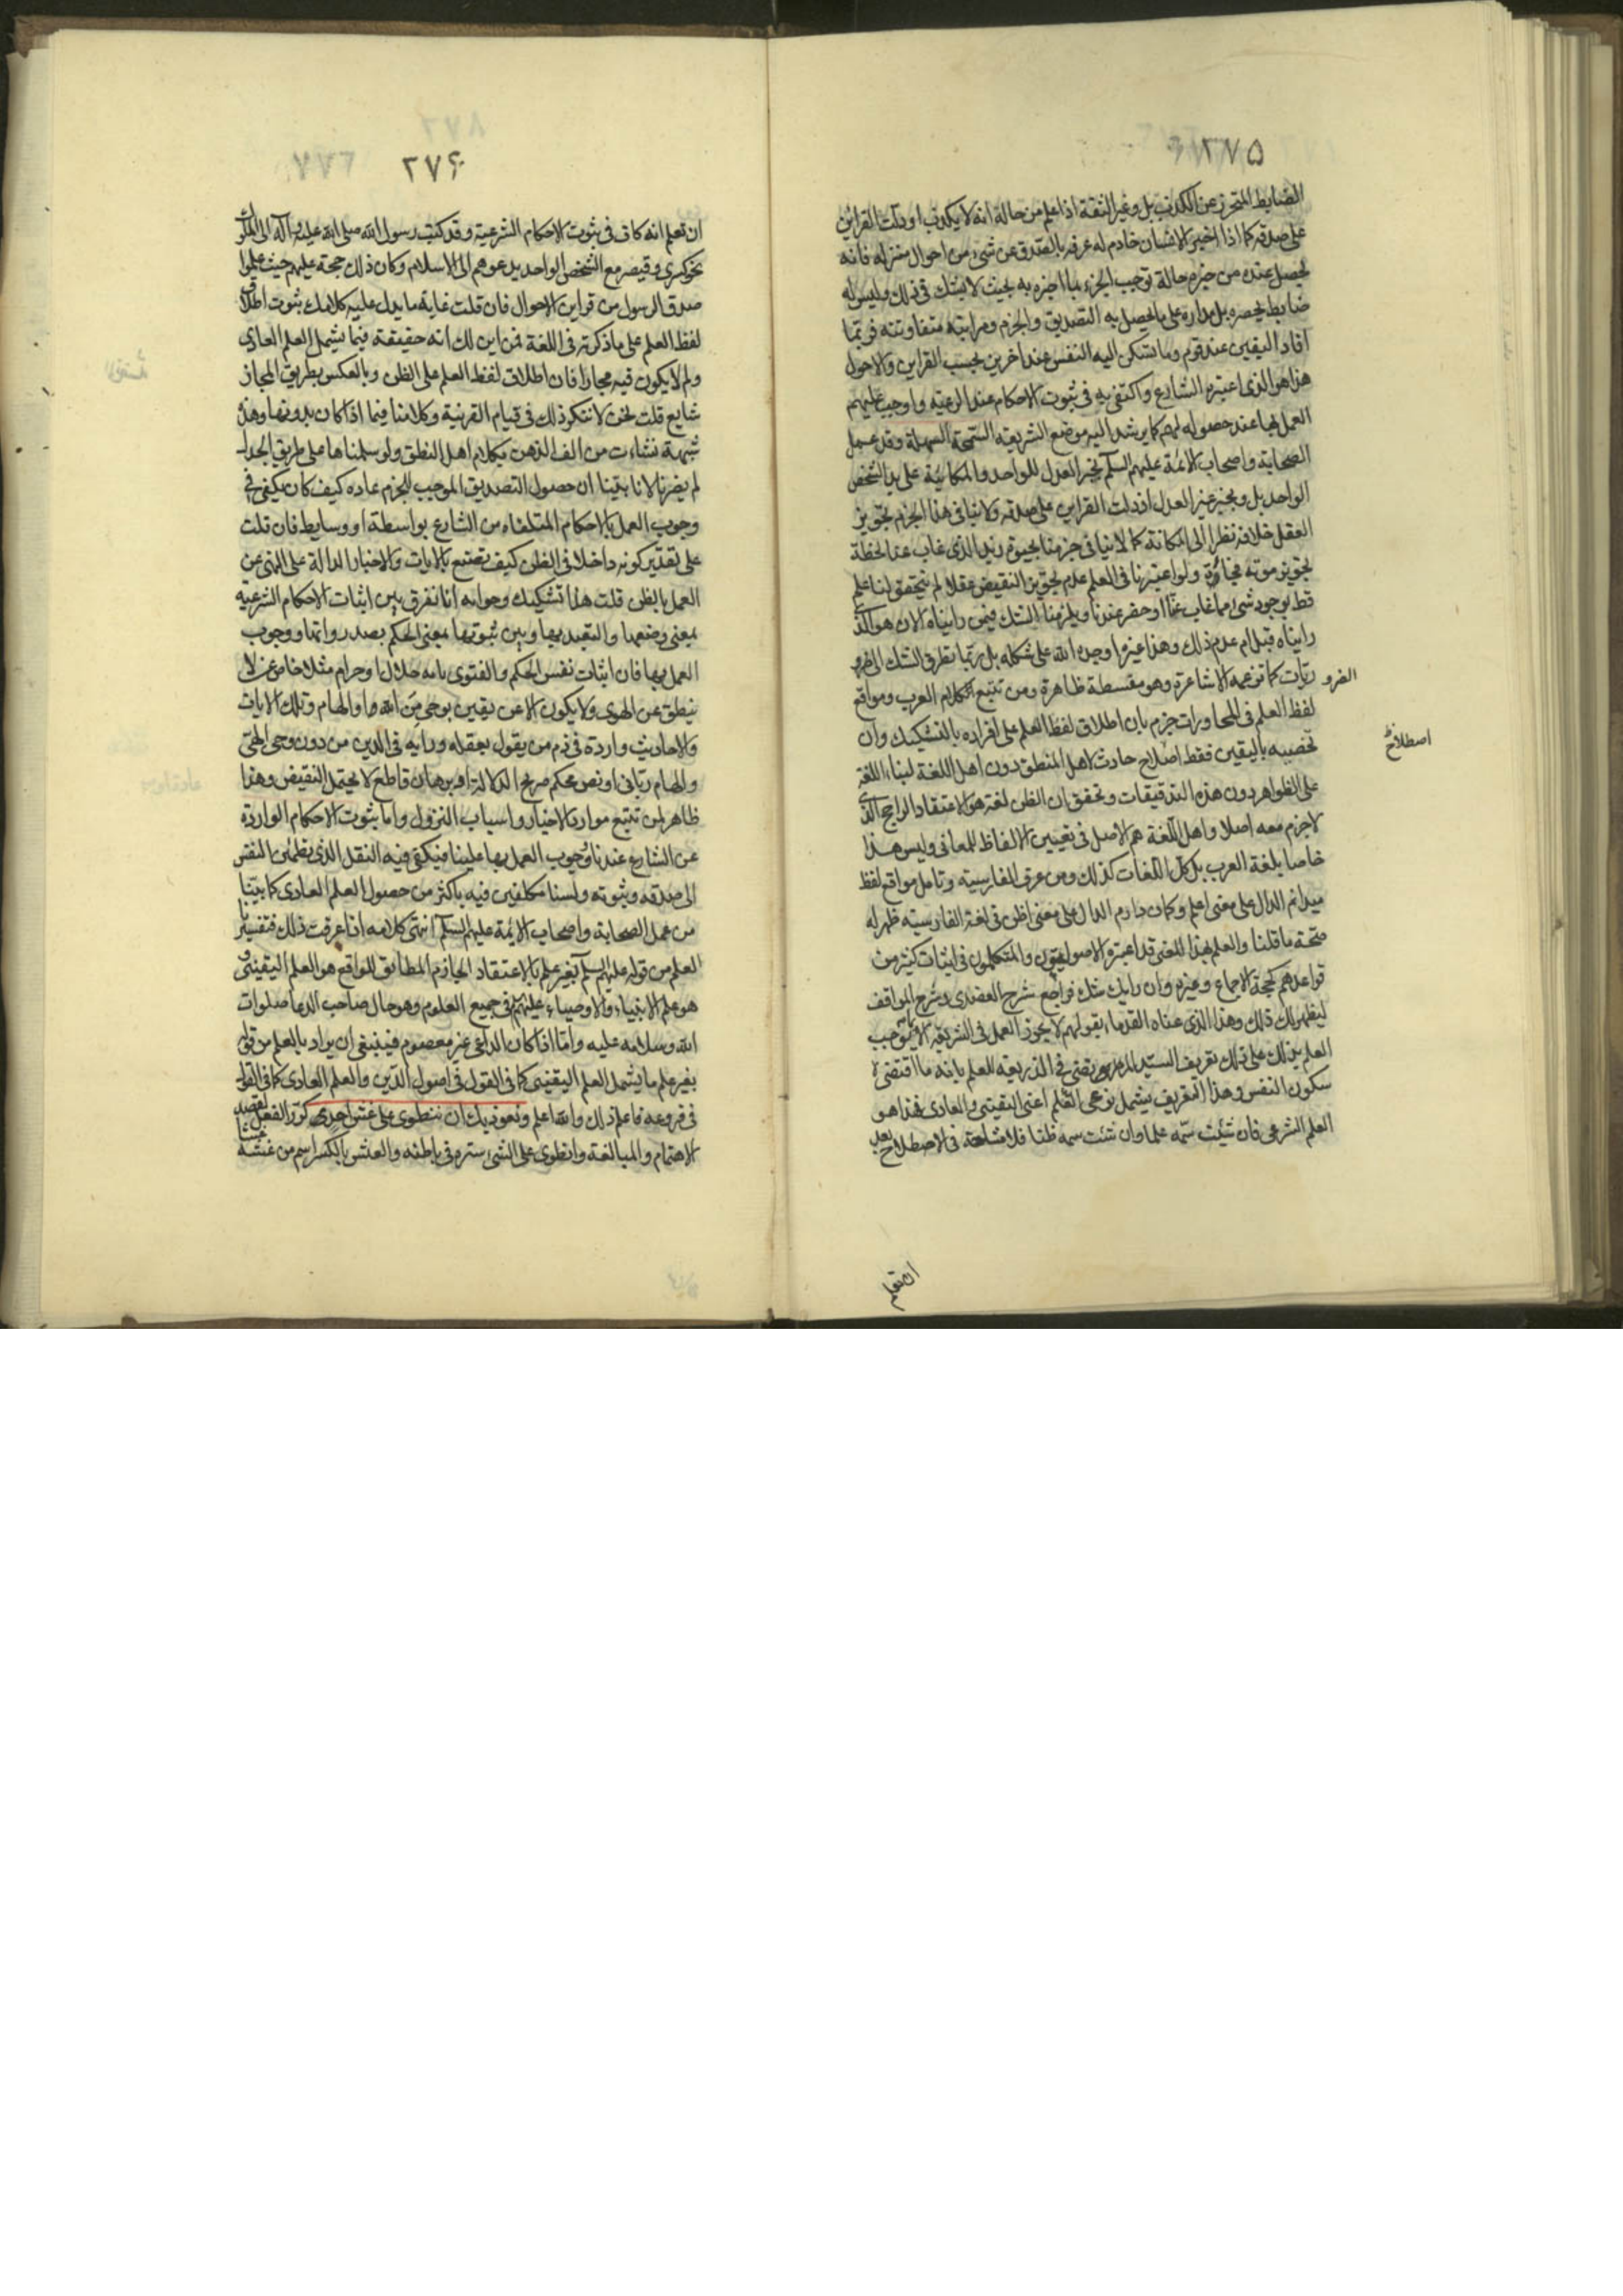 ٢٧٥
الضابط المتحرز عن الكذب بل وغير الثقة اذا علم من حاله انه لا يكذب او دلت القراين
على صدقه كما اذا اخبر الانسان خادم له عرفه بالصدق عن شئ من احوال منزله فانه
يحصل عنده من خبره حالة توجب الجزم بما اخبره به بحيث لا يشك فى ذلك وليس له
ضابط يحصره بل مداره على ما يحصل به التصديق والجزم ومراتبه متفاوتته فربما
افاد اليقين عند قوم وما تسكن اليه النفس عند اخرين بحسب القراين والاحوال
هذا هو الذى اعتبره الشارع واكتفى به فى ثبوت الاحكام عند الرعيه واوجب عليهم
العمل بها عند حصوله لهم كما يرشد اليه موضع الشريعه السمحة السهلة وقد عمل
الصحابة واصحاب الائمة عليهم السلم بخبر العدل الواحد والمكاتبة على يد الشخص
الواحد بل وبخبر غير العدل اذ دلت القراين على صدقه ولا ينافى هذا الجزم تجويز
العقل خلافه نظرا الى امكانه كما لا ينافى جزمنا بحيوة زيد الذى غاب عنا لحظة
تجويز موته فجأة ولو اعتبرنا فى العلم عدم تجويز النقيض عقلا لم يتحقق لنا علم
قط بوجود شئ مما غاب عنا او حضر عندنا ويلزمنا الشك فيمن رايناه الان هو الذى
رايناه قبل ام عدم ذلك وهذا غيره اوجده الله على شكله بل ربما تطرق الشك الى الضرو
الضرو
ريات كما توهمه الاشاعرة وهو سفسطة ظاهرة ومن تتبع كلام العرب ومواقع
لفظ العلم فى المحاورات جزم بان اطلاق لفظ العلم على افراده بالتشكيك وان
تخصيصه باليقين فقط اصلاح حادث لاهل المنطق دون اهل اللغة لبناء اللغة
اصطلاح
على الظواهر دون هذه التدقيقات وتحقق ان الظن لغة هو الاعتقاد الراجح الذى
لا جزم معه اصلا واهل اللغة هم الاصل فى تعيين الالفاظ للمعانى وليس هذا
خاصا بلغة العرب بل كل اللغات كذلك ومن عرف الفارسيه وتامل مواقع لفظ
ميدانم الدال على معنى اعلم وكمان دارم الدال على معنى اظن فى لغة الفارسيه ظهر له
صحة ما قلنا والعلم بهذا المعنى قد اعتبره الاصوليون والمتكلمون فى اثبات كثير من
قواعدهم كحجة الاجماع وغيره وان رابك شك فراجع شرح العضدى وشرح المواقف
ليظهر لك ذلك وهذا الذى عناه القدماء بقولهم لا يجوز العمل فى الشريعه الا بما يوجب
العلم يدلك على ذلك تعريف السيد المرتضى فى الذريعه للعلم بانه ما اقتضى
سكون النفس وهذا التعريف يشمل نوعى العلم اعنى اليقينى والعادى فهذا هو
العلم الشرعى فان شئت سمه علما وان شئت سمه ظنا فلا مشاحة فى الاصطلاح بعد
ان تعلم
٢٧۶
ان تعلم انه كاف فى ثبوت الاحكام الشرعية وقد كتب رسول الله صلى الله عليه وآله الى الملوك
نحو كسرى وقيصر مع الشخص الواحد يدعوهم الى الاسلام وكان ذلك حجة عليهم حيث علموا
صدق الرسول من قراين الاحوال فان قلت غاية ما يدل عليه كلامك ثبوت اطلاق
لفظ العلم على ما ذكرته فى اللغة فمن اين لك انه حقيقته فيما يشمل العلم العادى
ولم لا يكون فيه مجازا فان اطلاق لفظ العلم على الظن وبالعكس بطريق المجاز
شايع قلت نحن لا ننكر ذلك فى قيام القرينة وكلامنا فيما اذا كان بدونها وهذه
شبهة نشاءت من الف الذهن بكلام اهل المنطق ولو سلمناها على طريق الجدل
لم يضرنا لانا بينا ان حصول التصديق الموجب للجزم عاده كيف كان يكفى فى
وجوب العمل بالاحكام المتلقاه من الشارع بواسطة او وسايط فان قلت
على تقدير كونه داخلا فى الظن كيف تصنع بالايات والاخبار الدالة على النهى عن
العمل بالظن قلت هذا تشكيك وجوابه انا نفرق بين اثبات الاحكام الشرعيه
بمعنى وضعها والتعبد بها وبين ثبوتها بمعنى الحكم بصدر رواتها ووجوب
العمل بها فان اثبات نفس الحكم والفتوى بانه حلال او حرام مثلا خاص بمن لا
ينطق عن الهوى ولا يكون الا عن يقين بوحى من الله او الهام وتلك الايات
والاحاديث واردة فى ذم من يقول بعقله ورايه فى الدين من دون وحى الهى
والهام ربانى او نص محكم صريح الدلالة او برهان قاطع لا يحتمل النقيض وهذا
ظاهر لمن تتبع موارد الاخبار واسباب النزول واما ثبوت الاحكام الواردة
عن الشارع عندنا ووجوب العمل بها علينا فيكفى فيه النقل الذى تطمئن النفس
الى صدقه وثبوته ولسنا مكلفين فيه باكثر من حصول العلم العادى كما بينا
من عمل الصحابة واصحاب الائمة عليهم السلم انتهى كلامه اذا عرفت ذلك فتفسير
العلم من قوله عليهم السلم بغير علم بالاعتقاد الجازم المطابق للواقع هو العلم اليقينى و
هو علم الانبياء والاوصياء عليهم فى جميع العلوم وهو حال صاحب الدعا صلوات
الله وسلامه عليه واما اذا كان الداعى غير معصوم فينبغى ان يراد بالعلم من قوله
بغير علم ما يشمل العلم اليقينى كما فى القول فى اصول الدين والعلم العادى كما فى القول
فى فروعه فاعلم ذلك والله اعلم ونعوذ بك ان ننطوى على غش احد كرر الفعل لقصد
الاهتمام والمبالغة وانطوى على الشئ ستره فى باطنه والغش بالكسر اسم من غشه